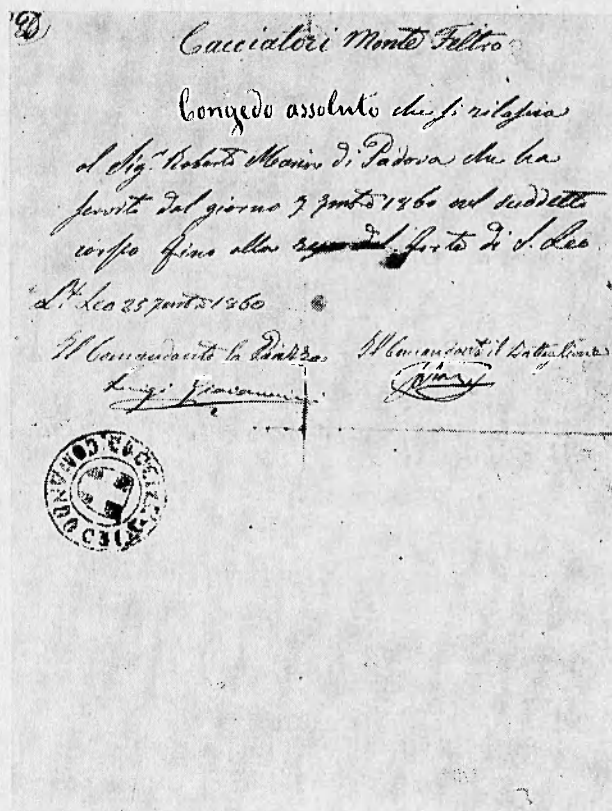 Cacciatori Monte Feltro
Congedo assoluto che si rilascia
al Sig.r Roberto Marin di Padova che ha
servito dal giorno 7 1860 nel suddetto
corpo fino alla del forte di S. Leo
S.t Leo 25 1860
Il Comandante la Piazza Il Comandante il Battaglione
Luigi
COMANDO